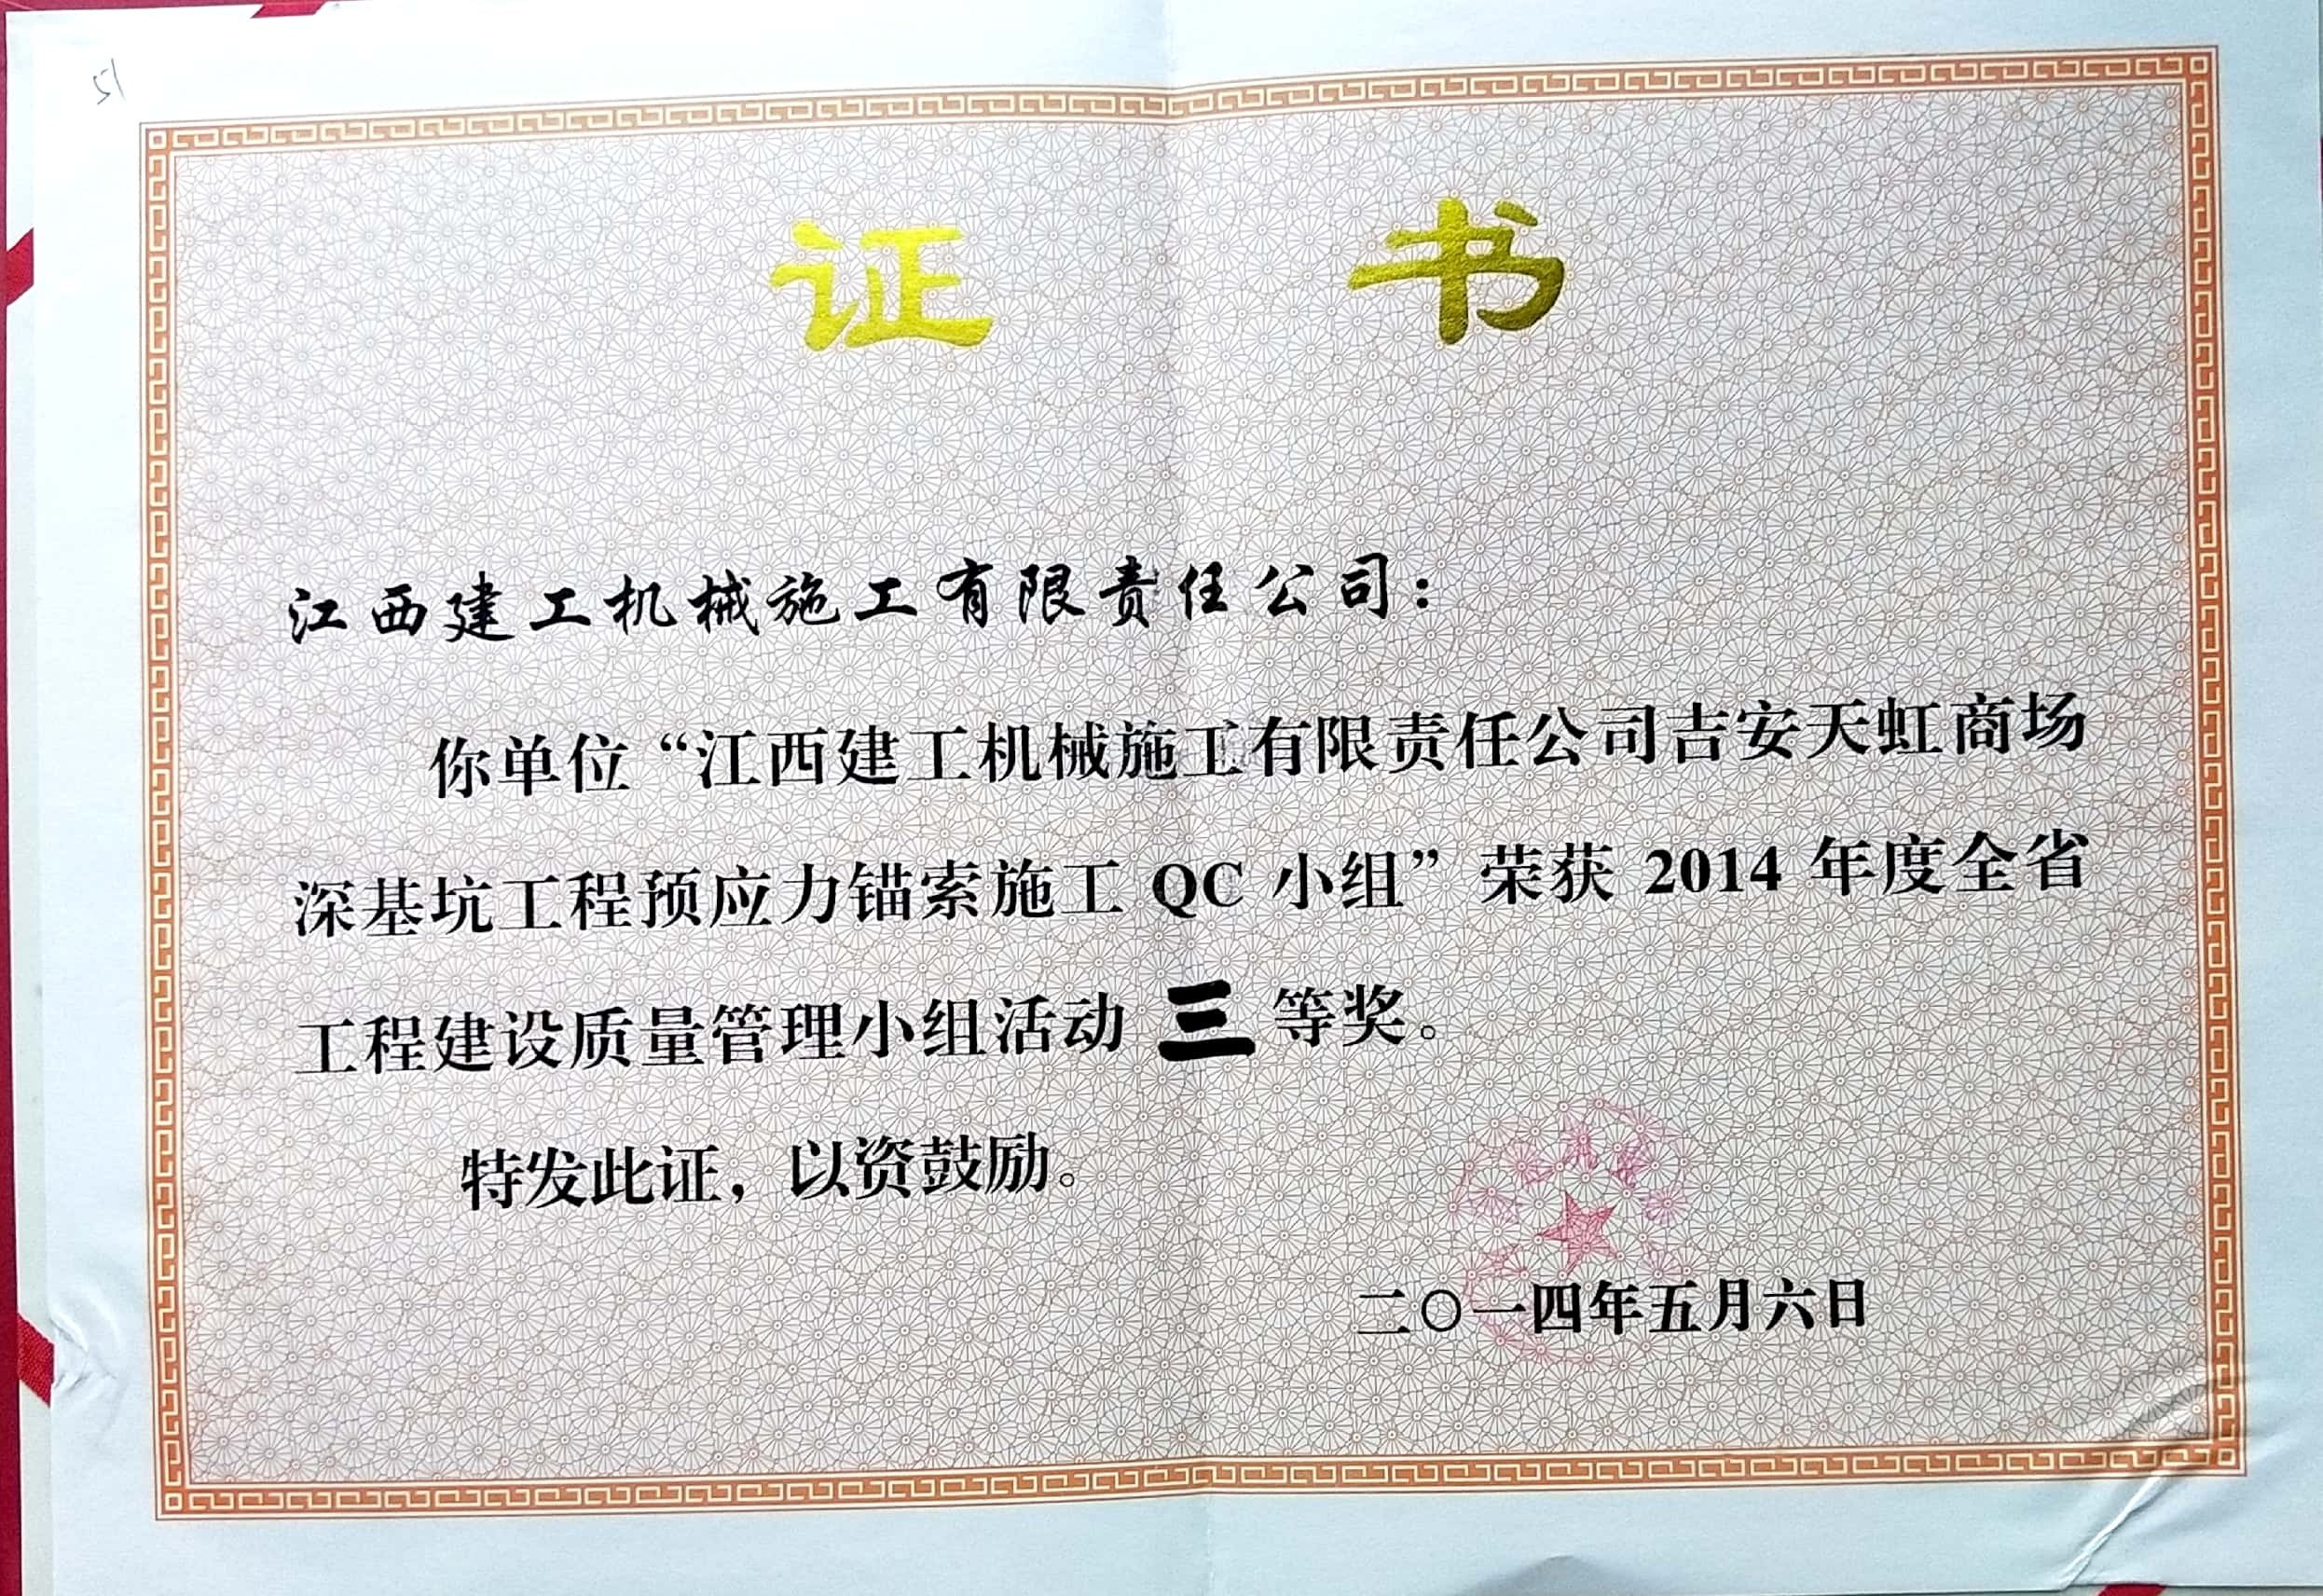 51
证 书
江西建工机械施工有限责任公司：
你单位“江西建工机械施工有限责任公司吉安天虹商场
深基坑工程预应力锚索施工 QC 小组”荣获 2014 年度全省
工程建设质量管理小组活动 三 等奖。
特发此证，以资鼓励。
二〇一四年五月六日